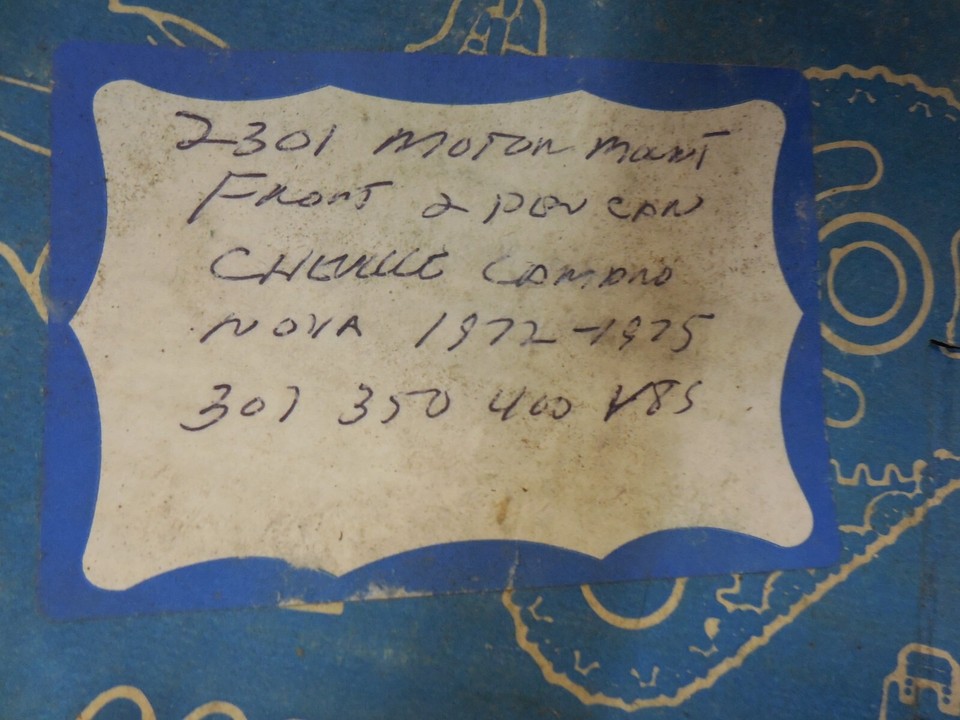 2301 MOTOR MOUNT
FRONT 2 PER CAR
CHEVELLE CAMARO
NOVA 1972-1975
307 350 400 V8S